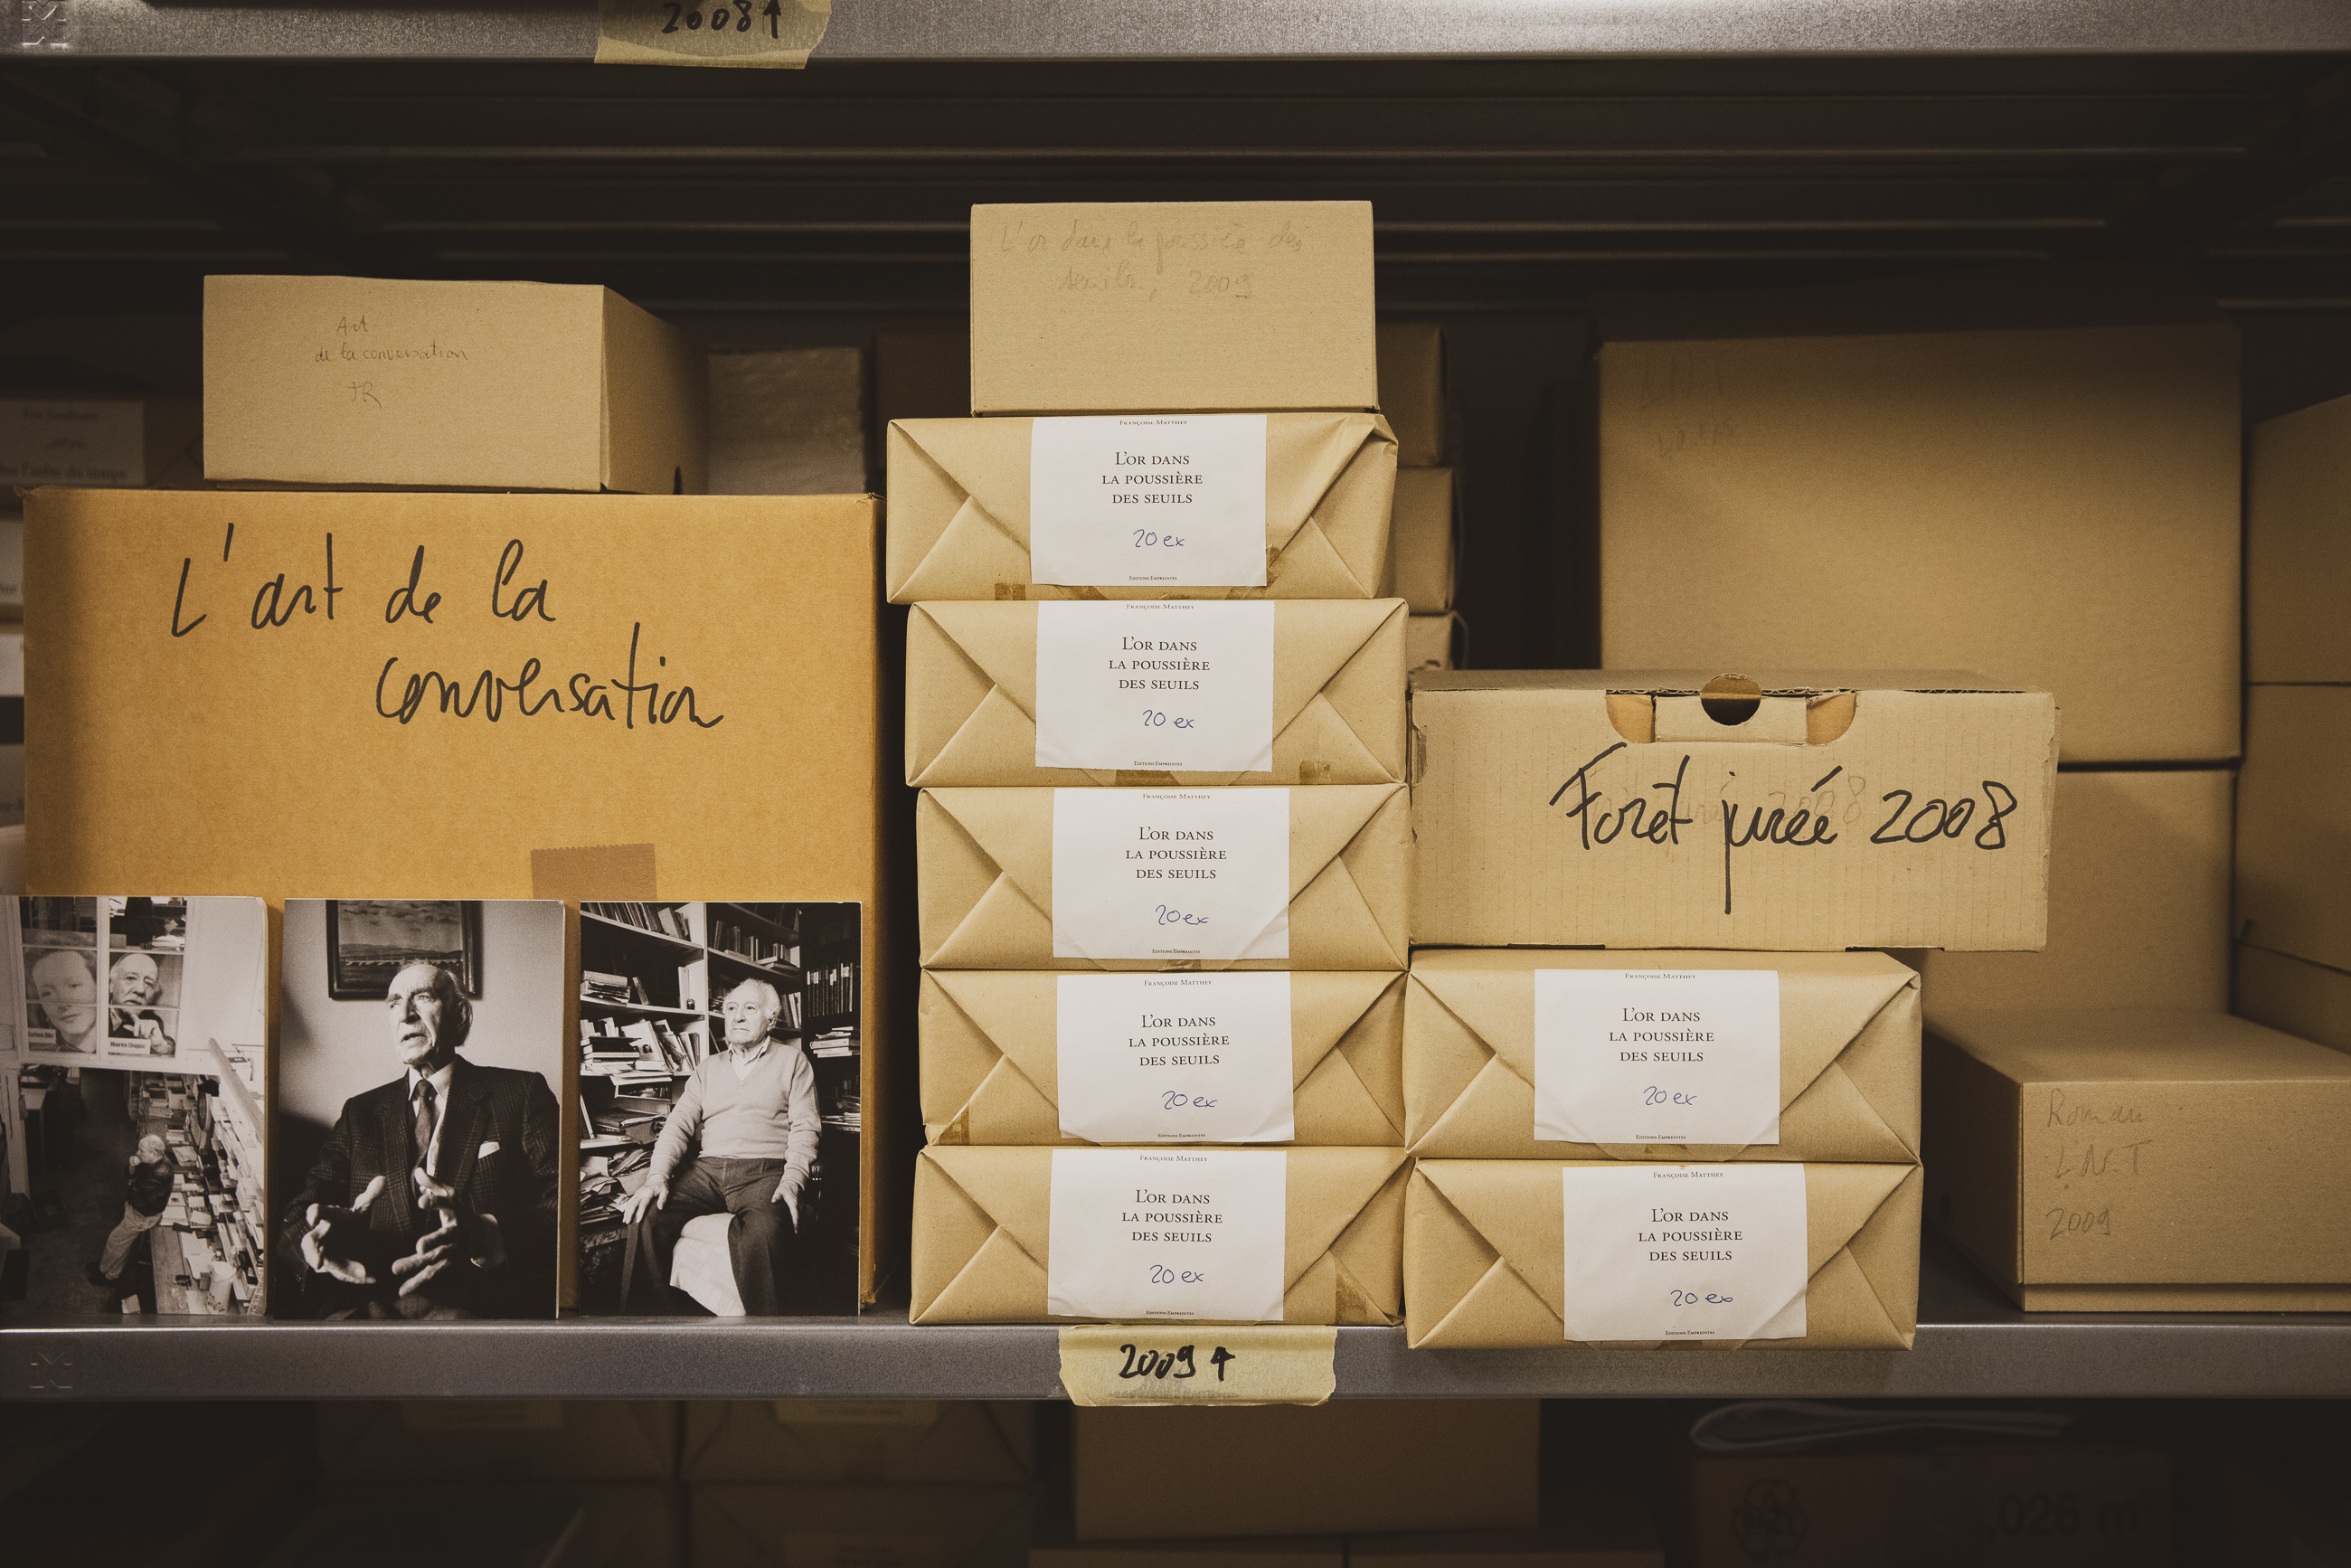 2008↑
L'or dans la poussière des
seuils, 2009
Art
de la conversation
JR
L'art de la
conversation
FRANÇOISE MATTHEY
L'OR DANS
LA POUSSIÈRE
DES SEUILS
20 ex
EDITIONS EMPREINTES
FRANÇOISE MATTHEY
L'OR DANS
LA POUSSIÈRE
DES SEUILS
20 ex
EDITIONS EMPREINTES
FRANÇOISE MATTHEY
L'OR DANS
LA POUSSIÈRE
DES SEUILS
20 ex
EDITIONS EMPREINTES
FRANÇOISE MATTHEY
L'OR DANS
LA POUSSIÈRE
DES SEUILS
20 ex
EDITIONS EMPREINTES
FRANÇOISE MATTHEY
L'OR DANS
LA POUSSIÈRE
DES SEUILS
20 ex
EDITIONS EMPREINTES
Forêt jurée 2008
FRANÇOISE MATTHEY
L'OR DANS
LA POUSSIÈRE
DES SEUILS
20 ex
EDITIONS EMPREINTES
FRANÇOISE MATTHEY
L'OR DANS
LA POUSSIÈRE
DES SEUILS
20 ex
EDITIONS EMPREINTES
Maurice Chappaz
Roman
2009
2009↑
,026 m³